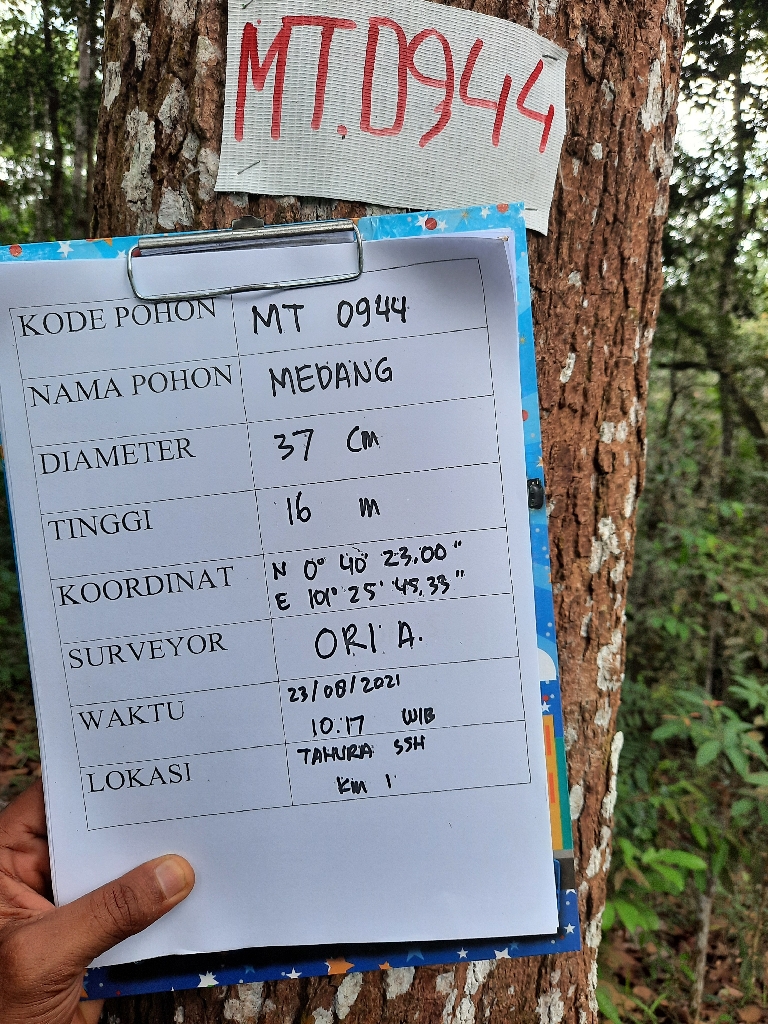 MT.0944
KODE POHON MT 0944
NAMA POHON MEDANG
DIAMETER 37 Cm
TINGGI 16 m
KOORDINAT N 0° 40' 23,00"
E 101° 25' 45,33"
SURVEYOR ORI A.
WAKTU 23/08/2021
10:17 WIB
LOKASI TAHURA SSH
Km 1